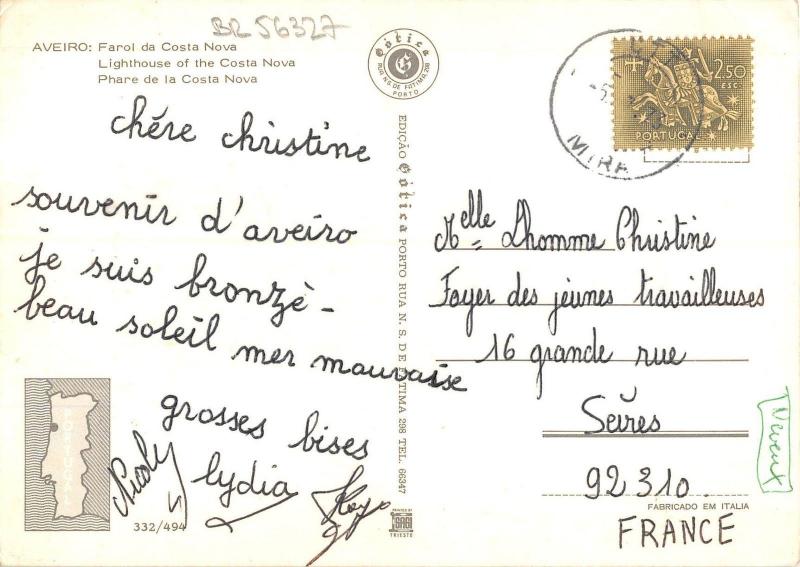 BR 56327
AVEIRO: Farol da Costa Nova
Lighthouse of the Costa Nova
Phare de la Costa Nova
chére christine
souvenir d'aveiro
je suis bronzè -
beau soleil mer mauvaise
grosses bises
lydia
332/494
PORTUGAL
Gótica
G
RUA N.S DE FATIMA, 298
PORTO
EDIÇÃO Gótica PORTO RUA N. S. DE FATIMA 298 TEL. 66347
PRINTED BY
TRIESTE
2.50
ESC.
PORTUGAL
MIRA
Melle Lhomme Christine
Foyer des jeunes travailleuses
16 grande rue
Sèvres
92310.
FABRICADO EM ITALIA
FRANCE